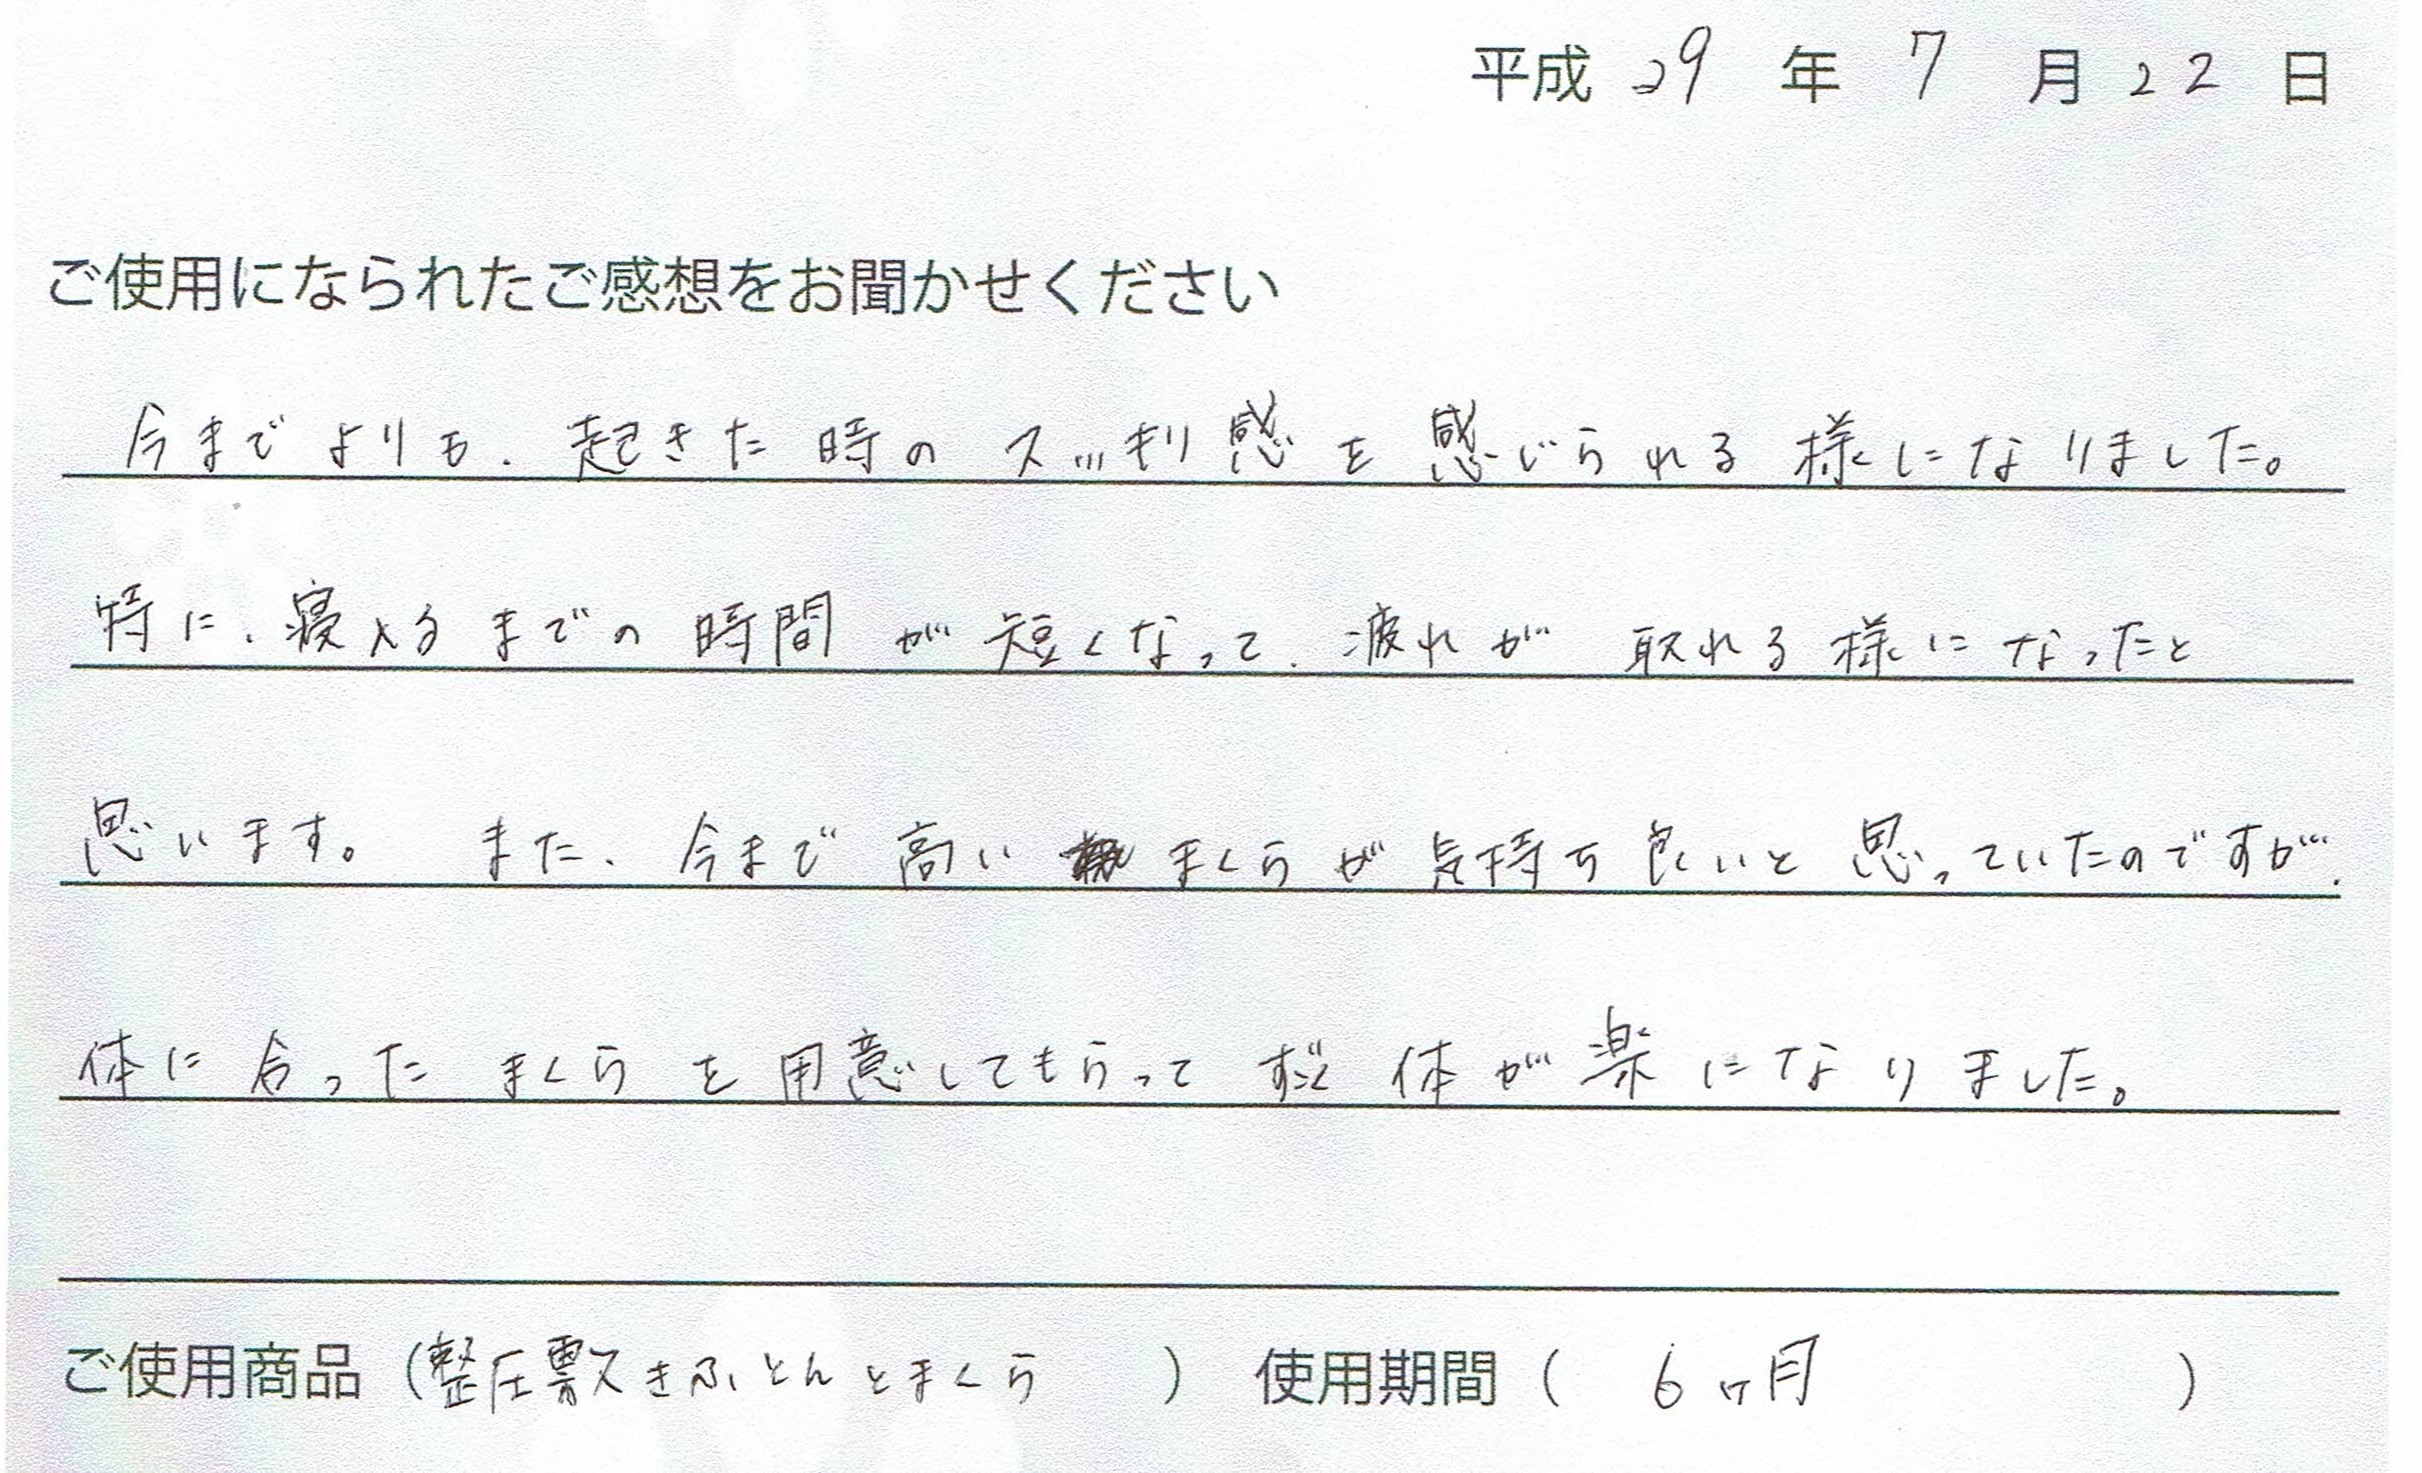 平成 29 年 7 月 22 日
ご使用になられたご感想をお聞かせください
今までよりも、起きた時のスッキリ感を感じられる様になりました。
特に、寝入るまでの時間が短くなって、疲れが取れる様になったと
思います。また、今まで高いまくらが気持ち良いと思っていたのですが、
体に合ったまくらを用意してもらってすごく体が楽になりました。
ご使用商品（整圧敷きふとんとまくら）使用期間（6ヶ月）